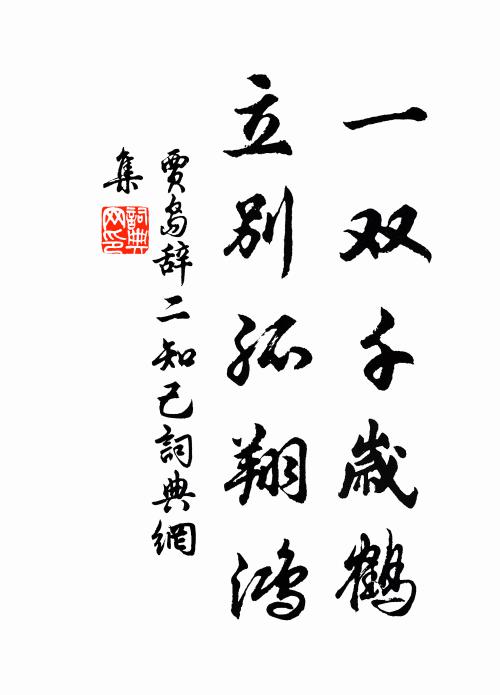 一双千岁鹤
立别孤翔鸿
贾岛辞二知己詞典網
集
詞典网印